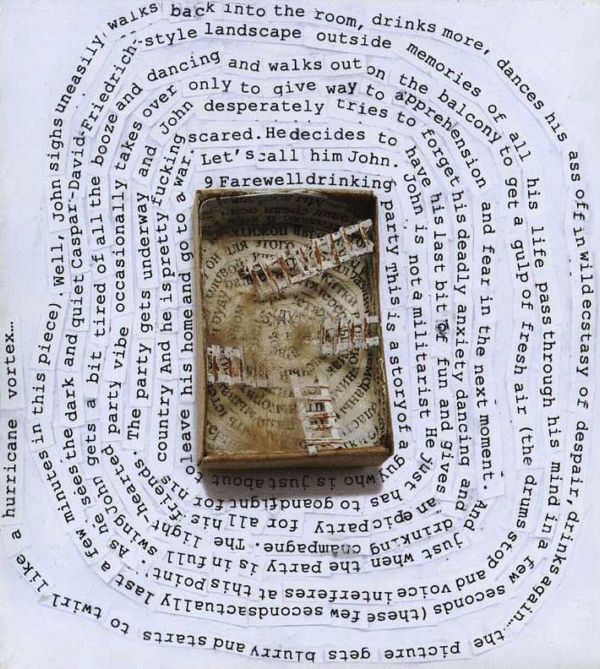 9 Farewell drinking party This is a story of a guy who is just about to leave his home and go to a war.
Let's call him John. John is not a militarist He just has to go and fight for his country And he is pretty fucking
scared. He decides to have his last bit of fun and gives an epic party for all his friends. The party gets underway and John
desperately tries to forget his deadly anxiety dancing and drinking champagne. The light-hearted party vibe occasionally takes over
only to give way to apprehension and fear in the next moment. And just when the party is in full swing John gets a bit tired of all the booze and dancing
and walks out on the balcony to get a gulp of fresh air (the drums stop and voice interferes at this point). As he sees the dark and quiet Caspar-David-Friedrich-style
landscape outside memories of all his life pass through his mind in a few seconds (these few seconds actually last a few minutes in this piece). Well, John sighs uneasily, walks
back into the room, drinks more, dances his ass off in wild ecstasy of despair, drinks again... the picture gets blurry and starts to twirl like a hurricane vortex...